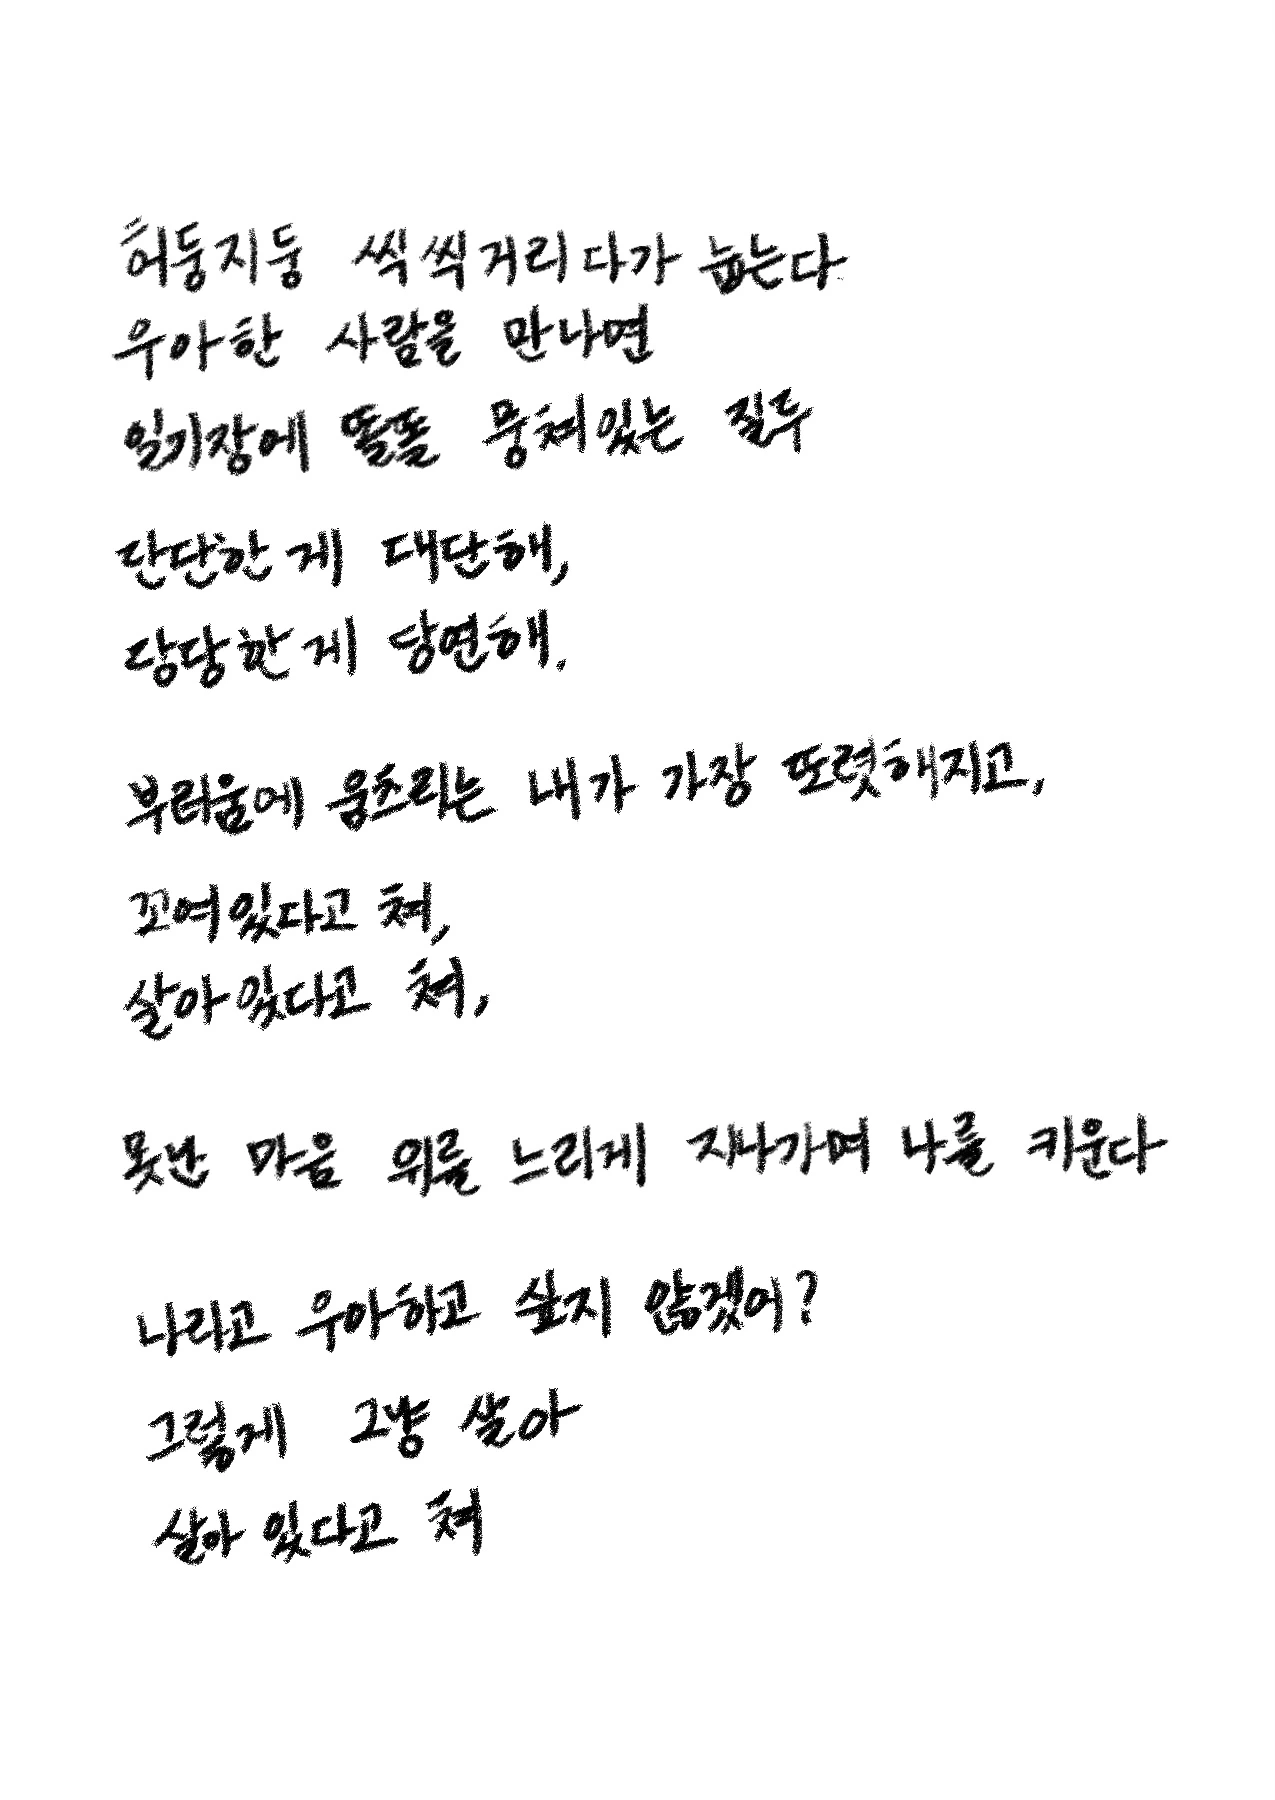 허둥지둥 씩씩거리다가 눕는다
우아한 사람을 만나면
일기장에 똘똘 뭉쳐있는 질투
단단한게 대단해,
당당한게 당연해.
부러움에 움츠리는 내가 가장 또렷해지고,
꼬여있다고 쳐,
살아있다고 쳐,
못난 마음 위를 느리게 지나가며 나를 키운다
나라고 우아하고 싶지 않겠어?
그렇게 그냥 살아
살아있다고 쳐